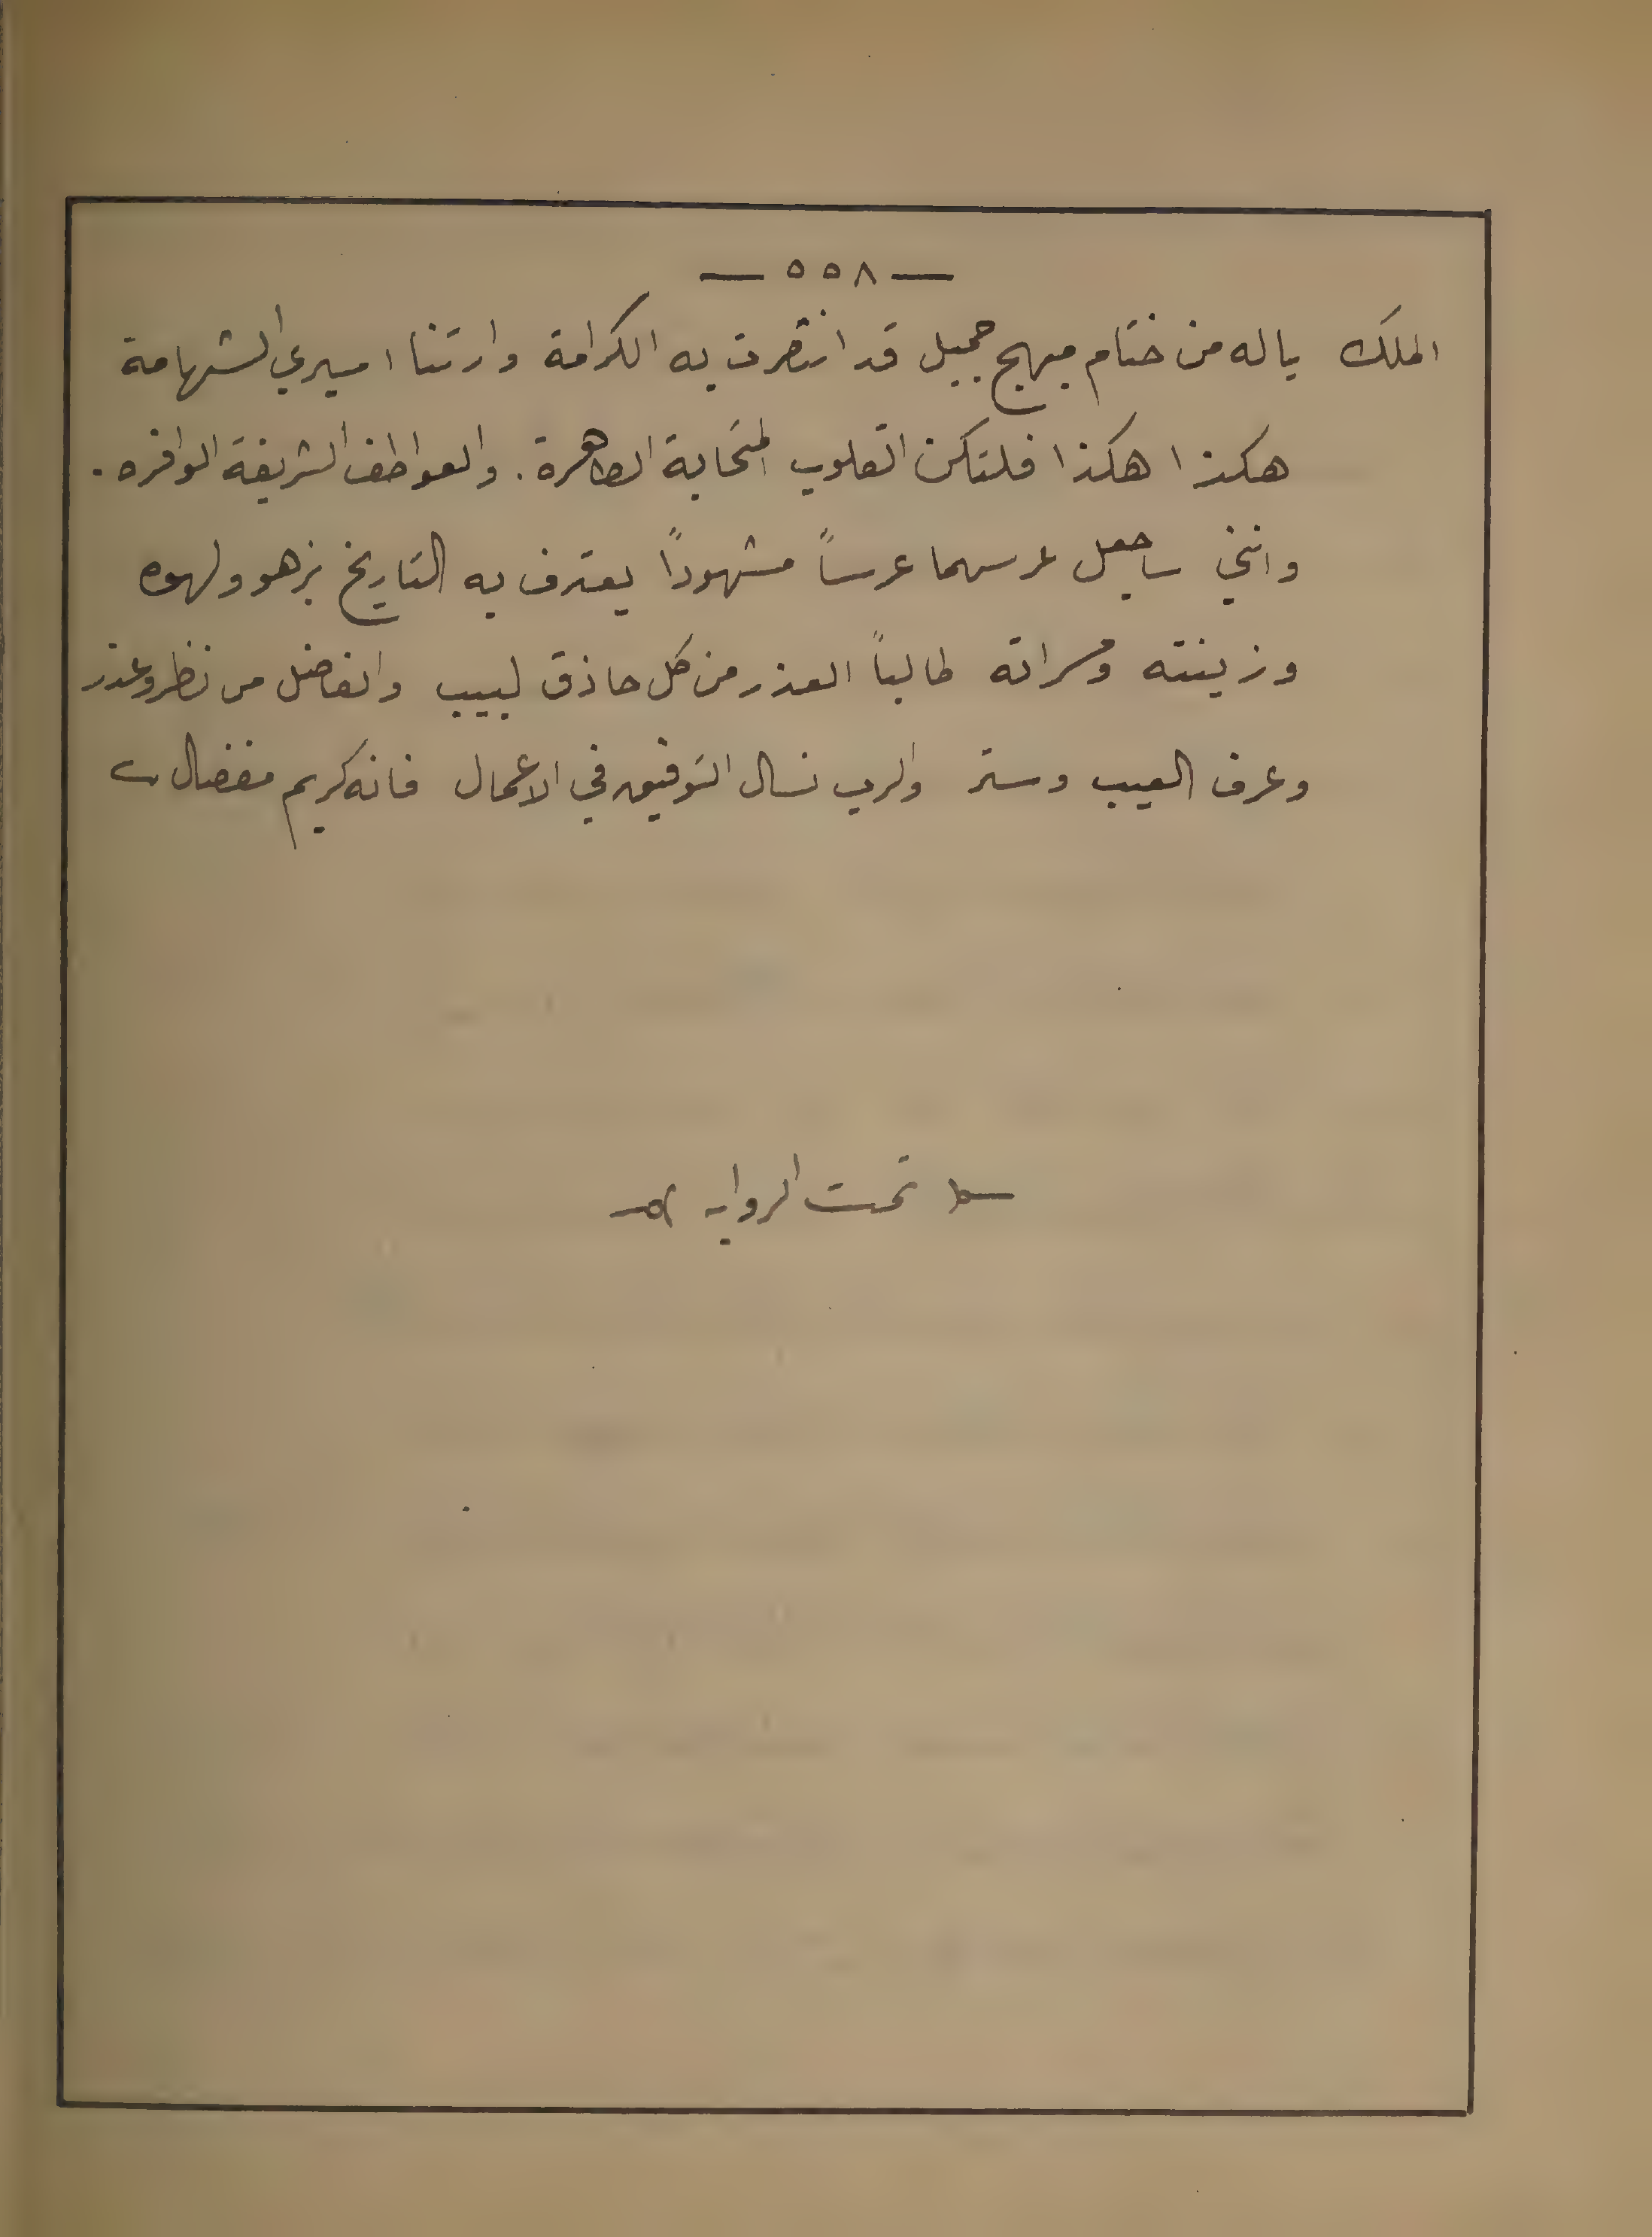 — ٥٥٨ —
الملك ياله من ختام مبهج جميل قد انتصرت به الكرامة وارتنا اميري الشهامة
هكذا هكذا فلتكن القلوب المتحابة الطاهرة . والعواطف الشريفة الوافره .
وانني ساجعل عرسهما عرساً مشهوداً يعترف به التاريخ بزهو ولهوه
وزينته ومسراته طالباً العذر من كل حاذق لبيب والفاضل من نظر وعذر
وعرف العيب وستر والرب نسال التوفيق في الاعمال فانه كريم مفضال
تمت الروايه